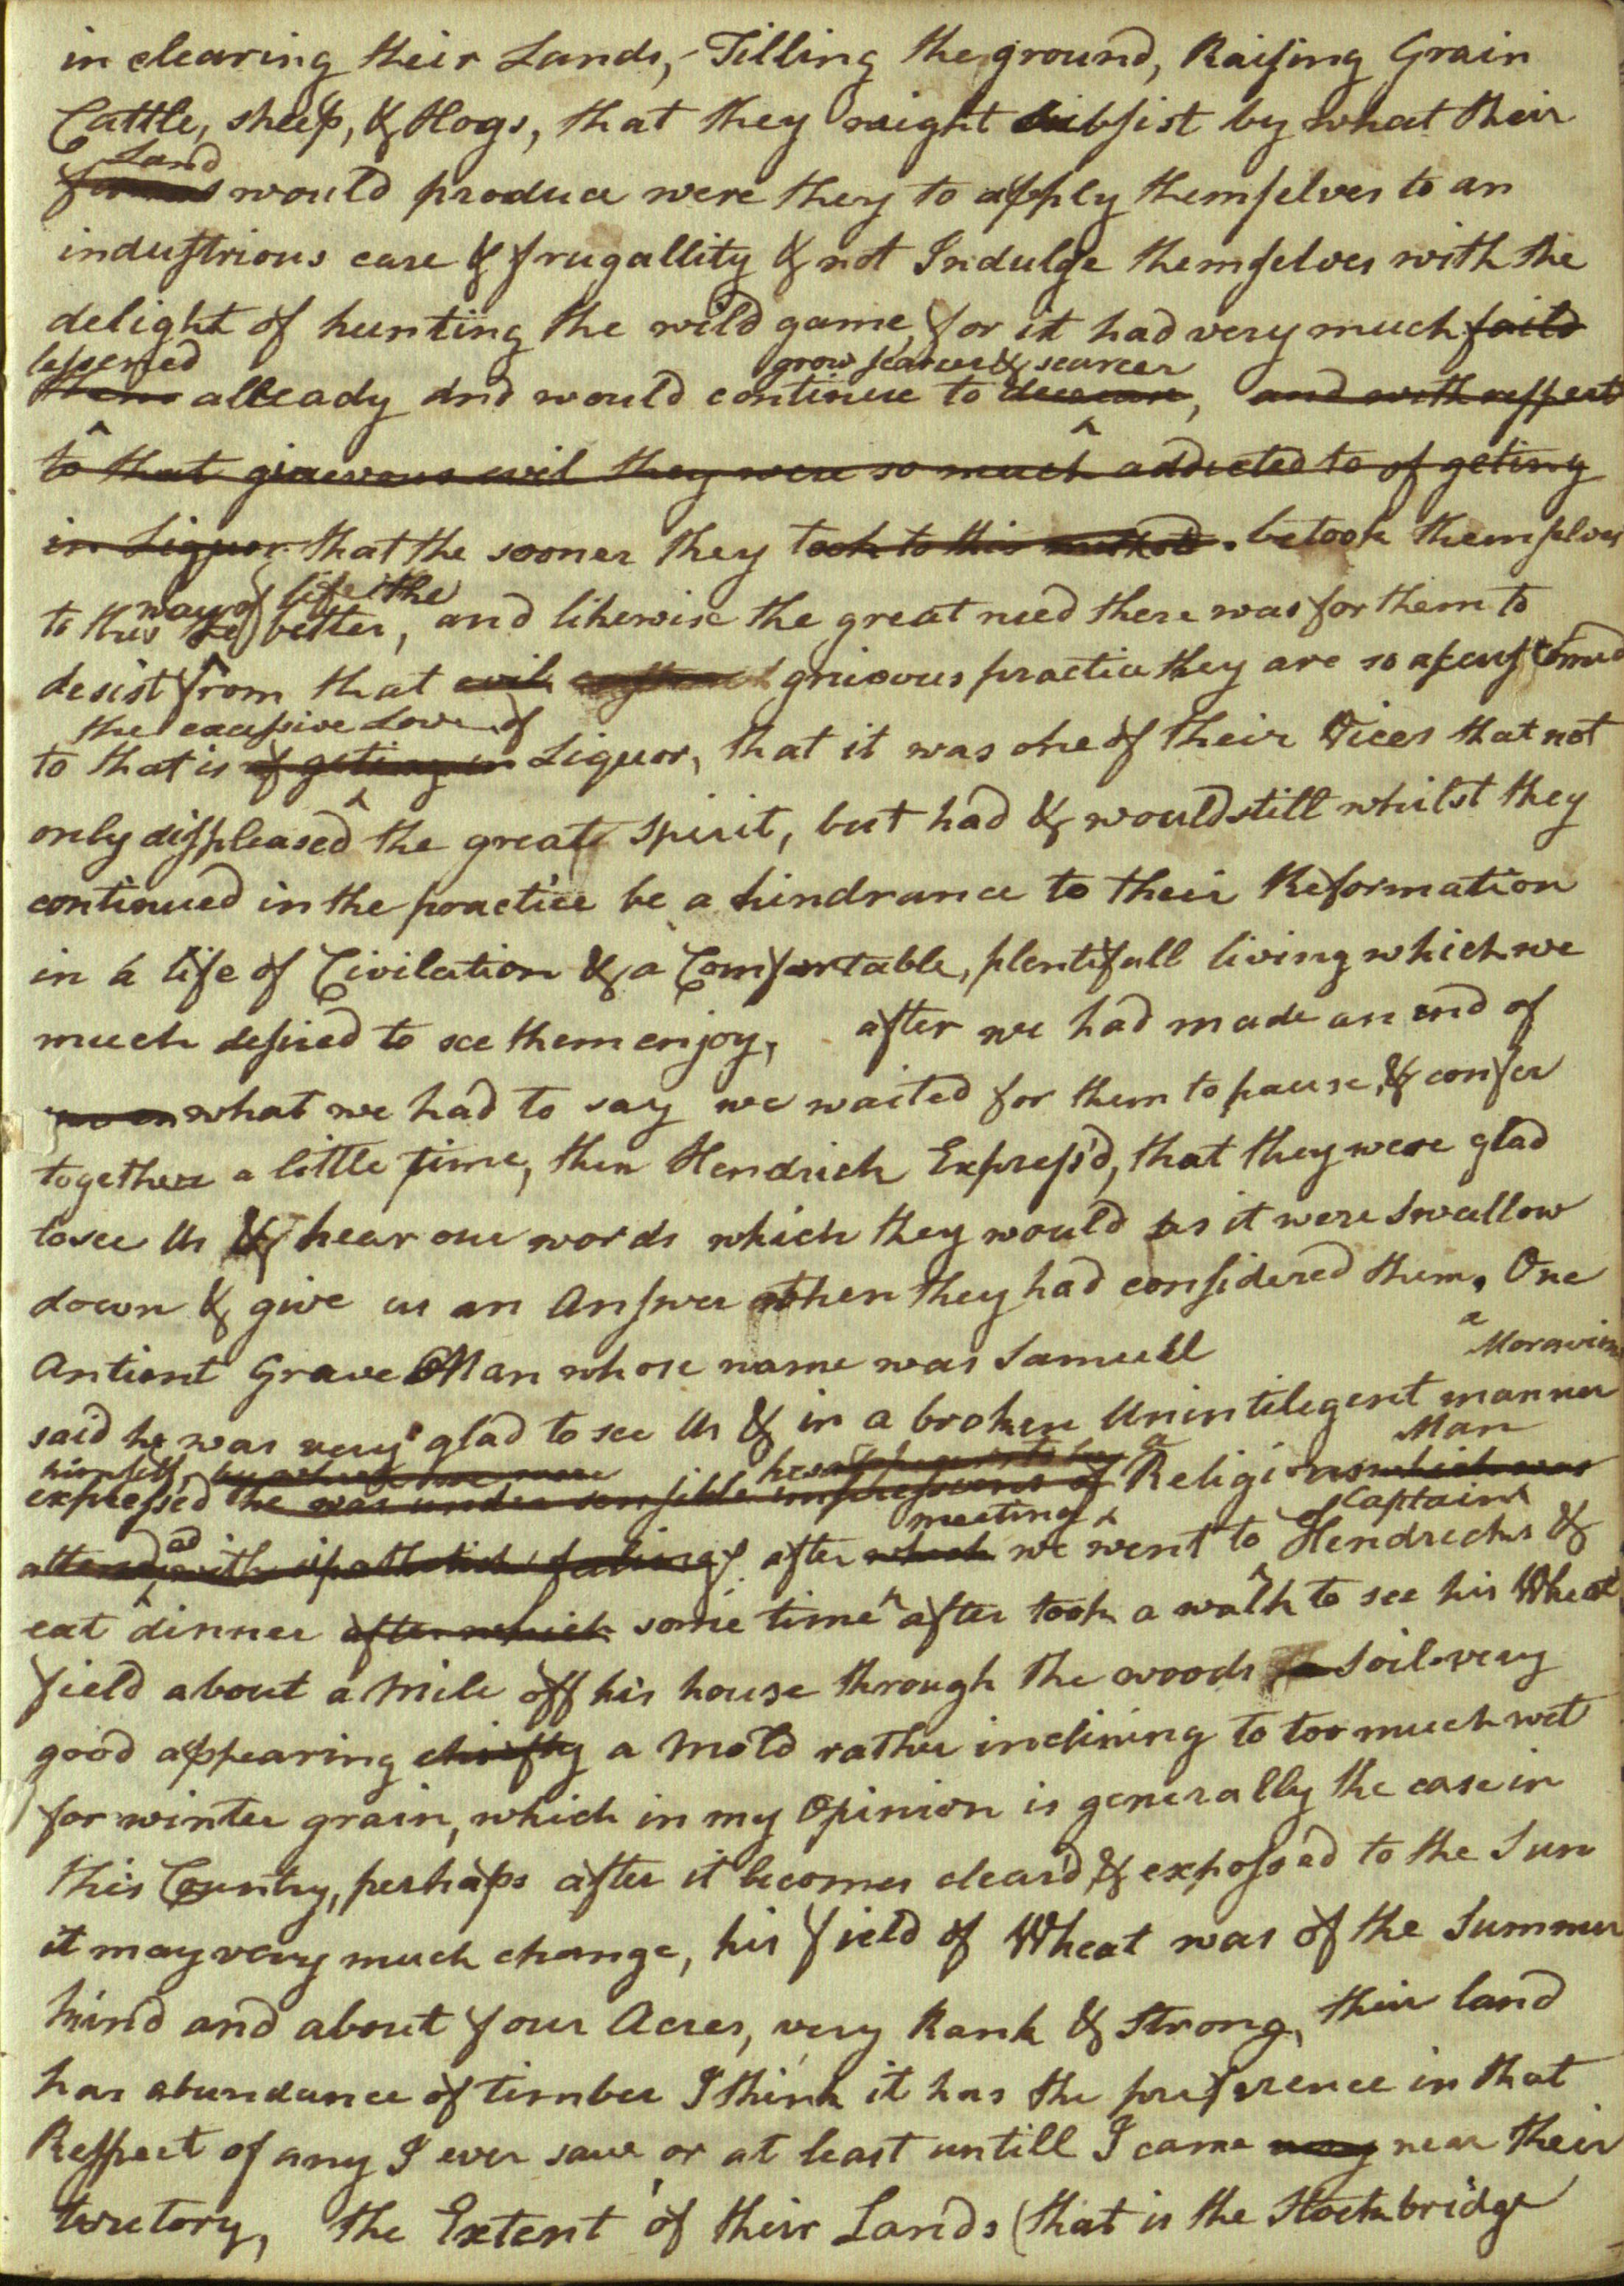 in clearing their Lands, Tilling the ground, Raising Grain
Cattle, sheep, & Hogs, that they might subsist by what their
Land
farms would produce were they to apply themselves to an
industrious care & frugallity & not Indulge themselves with the
delight of hunting the wild game, for it had very much faild
lessened grow scarcer & scarcer
them allready and would continue to decrease, and with respect
to that grievous evil they were so much addicted to of geting
in Liquor that the sooner they took to this method betook themselves
way of life the
to this the better, and likewise the great need there was for them to
desist from that evil grievous practice they are so acustomed
the excessive Love of
to that is of geting in Liquor, that it was one of their Vices that not
only displeased the great Spirit, but had & would still whilst they
continued in the practice be a hindrance to their Reformation
in a life of Civilation & a Comfortable, plentifull living which we
much desired to see them enjoy, after we had made an end of
what we had to say we waited for them to pause, & confer
together a little time, then Hendrick Express'd, that they were glad
to see Us & hear our words which they would as it were Swallow
down & give us an Answer when they had considered them. One
a Moravian
Antient Grave Man whose name was Samuell
said he was very glad to see Us & in a broken Unintelegent manner
himself, by which we were he appears to be a Man
expressed he was under sensible impressions of Religious which was
ed meeting Captain
attend with feelings after which we went to Hendricks &
eat dinner after which some time after took a walk to see his Wheat
field about a Mile off his house through the woods soil very
good appearing chiefly a Mold rather inclining to too much wet
for winter grain, which in my Opinion is generally the case in
this Country, perhaps after it becomes cleard, & exposed to the Sun
it may very much change, his field of Wheat was of the Summer
kind and about four Acres, very Rank & Strong, their land
has abundance of timber I think it has the preference in that
Respect of any I ever saw or at least untill I came near their
teretory, the Extent of their Lands (that is the Stockbridge